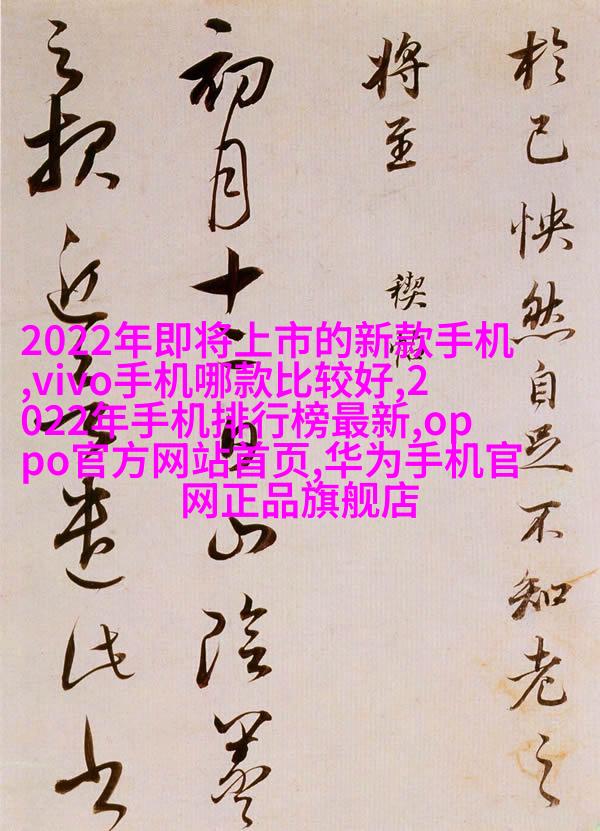 2022年即将上市的新款手机
,vivo手机哪款比较好,2
022年手机排行榜最新,op
po官方网站首页,华为手机官
网正品旗舰店
於己怏然自足不知老之
将至
禊帖
初月十二日山陰羲
之報近遣此書